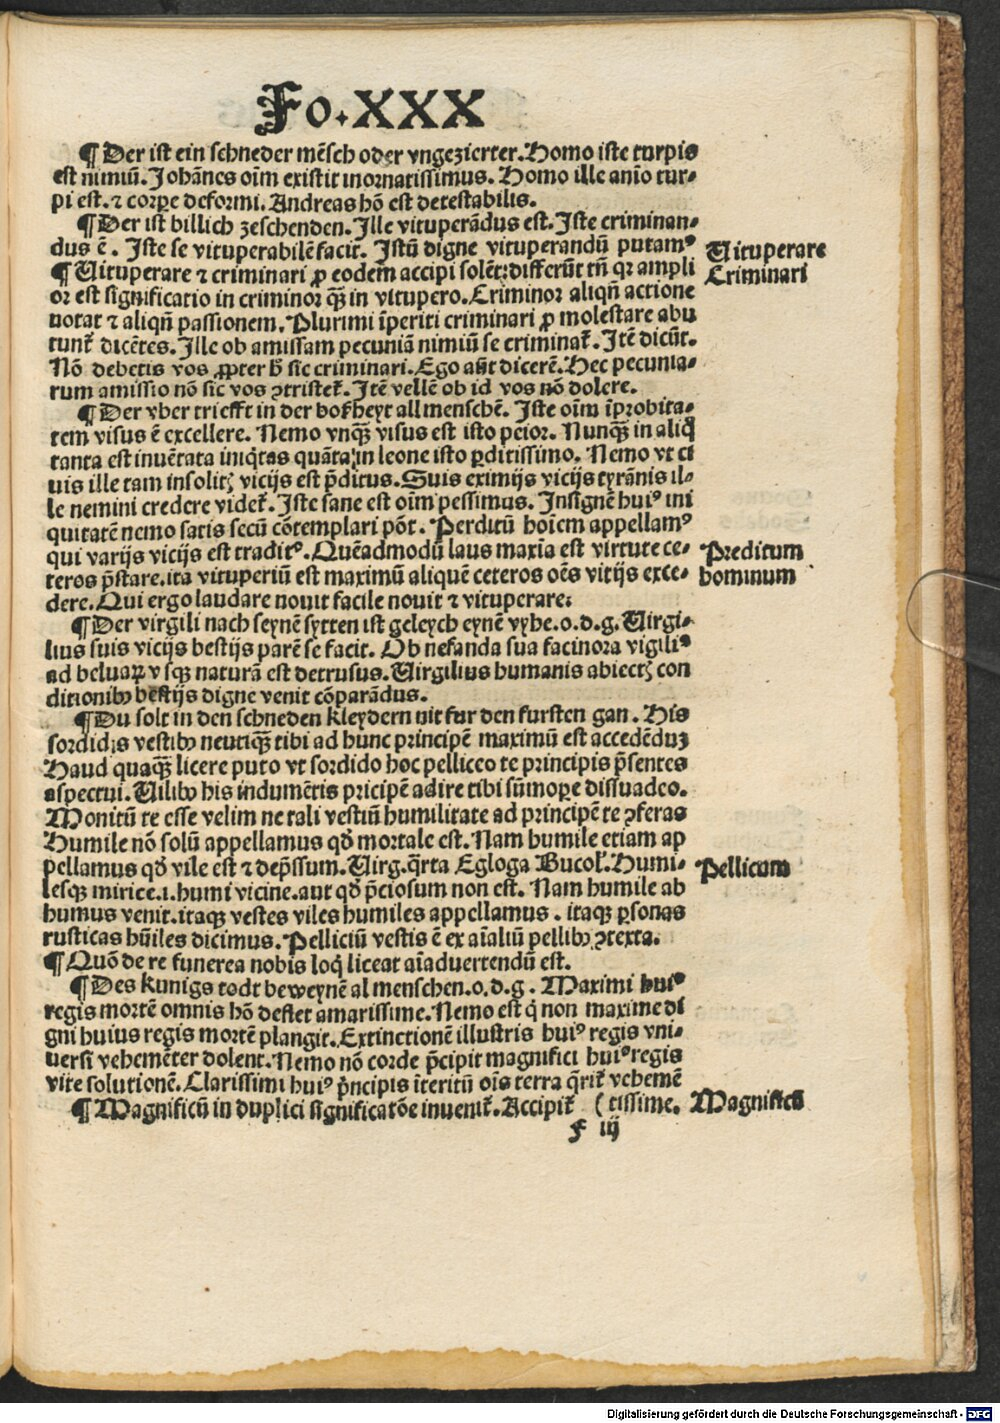 Fo.XXX
¶ Der ist ein schneder mēsch oder vngezierter. Homo iste turpis
est nimiū. Johānes oīm existit inornatissimus. Homo ille anīo tur⸗
pi est. ⁊ corpe deformi. Andreas hō est detestabilis.
¶ Der ist billich zeschenden. Ille vituperādus est. Iste criminan⸗
dus ē. Iste se vituperabilē facit. Istū digne vituperandū putamꝰ
Vituperare
¶ Vituperare ⁊ criminari ꝓ eodem accipi solēt: differūt tñ qꝛ ampli
Criminari
or est significatio in criminor qꝫ̄ in vitupero. Criminor aliqñ actione
notat ⁊ aliqñ passionem. Plurimi īperiti criminari ꝓ molestare abu
tunt̃ dicētes. Ille ob amissam pecuniā nimiū se criminat̃. Itē dicūt.
Nō debetis vos ꝓpter ħ sic criminari. Ego aūt dicerē. Hec pecunia⸗
rum amissio nō sic vos ꝯtristet̃. Itē vellē ob id vos nō dolere.
¶ Der vber triefft in der boßheyt all menschē. Iste oīm īprobita⸗
tem visus ē excellere. Nemo vnqꝫ̄ visus est isto peior. Nunqꝫ̄ in aliq̄
tanta est inuētata iniq̇tas quāta in leone isto ꝑditissimo. Nemo vt ci
uis ille tam insolitꝫ vicijs est p̄ditus. Suis eximijs vicijs tyrānis il⸗
le nemini credere videt̃. Iste sane est oīm pessimus. Insignē huiꝰ ini
quitatē nemo satis secū cōtemplari pōt. Perditū hoīem appellamꝰ
qui varijs vicijs est traditꝰ. Quēadmodū laus maxīa est virtute ce⸗
Preditum
teros p̄stare. ita vituperiū est maximū aliquē ceteros oēs vitijs exce⸗
hominum
dere. Qui ergo laudare nouit facile nouit ⁊ vituperare:
¶ Der virgili nach seynē sytten ist geleych eynē vyhe. o. d. g. Virgi⸗
lius suis vicijs bestijs parē se facit. Ob nefanda sua facinora vigiliꝰ
ad beluaꝝ vsqꝫ naturā est detrusus. Virgilius humanis abiectꝫ con
ditionibꝫ bestijs digne venit cōparādus.
¶ Du solt in den schneden kleydern nit fur den fursten gan. His
sordidis vestibꝫ neutiqꝫ̄ tibi ad hunc principē maximū est accedēduꝫ
Haud quaqꝫ̄ licere puto vt sordido hoc pellicco te principis p̄sentes
aspectui. Vilibꝫ his indumētis pricipē adire tibi sūmoꝑe dissuadeo.
Monitū te esse velim ne tali vestiū humilitate ad principē te ꝯferas
Humile nō solū appellamus qđ mortale est. Nam humile etiam ap
pellamus qđ vile est ⁊ dep̄ssum. Virg. q̄rta Egloga Bucol̃. Humi⸗
Pellicum
lesqꝫ mirice. i. humi vicine. aut qđ p̄ciosum non est. Nam humile ab
humus venit. itaqꝫ vestes viles humiles appellamus. itaqꝫ ꝑsonas
rusticas hūiles dicimus. Pelliciū vestis ē ex aīaliū pellibꝫ ꝯtexta.
¶ Quō de re funerea nobis loq̇ liceat aīaduertendū est.
¶ Des kunigs todt beweynē al menschen. o. d. g. Maximi huiꝰ
regis mortē omnis hō deflet amarissime. Nemo est q̇ non maxime di
gni huius regis mortē plangit. Extinctionē illustris huiꝰ regis vni⸗
uersi vehemēter dolent. Nemo nō corde p̄cipit magnifici huiꝰ regis
vite solutionē. Clarissimi huiꝰ p̄ncipis īteritū oīs terra q̄rit̃ vehemē
¶ Magnificū in duplici significatōe inuenit̃. Accipit̃ (tissime.
Magnificū
F iij
Digitalisierung gefördert durch die Deutsche Forschungsgemeinschaft - DFG